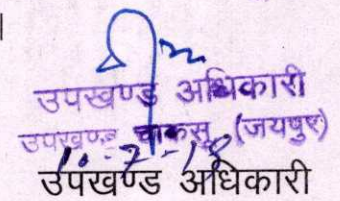 उपखण्ड अधिकारी
उपखण्ड चाकसू (जयपुर)
10-7-18
उपखण्ड अधिकारी